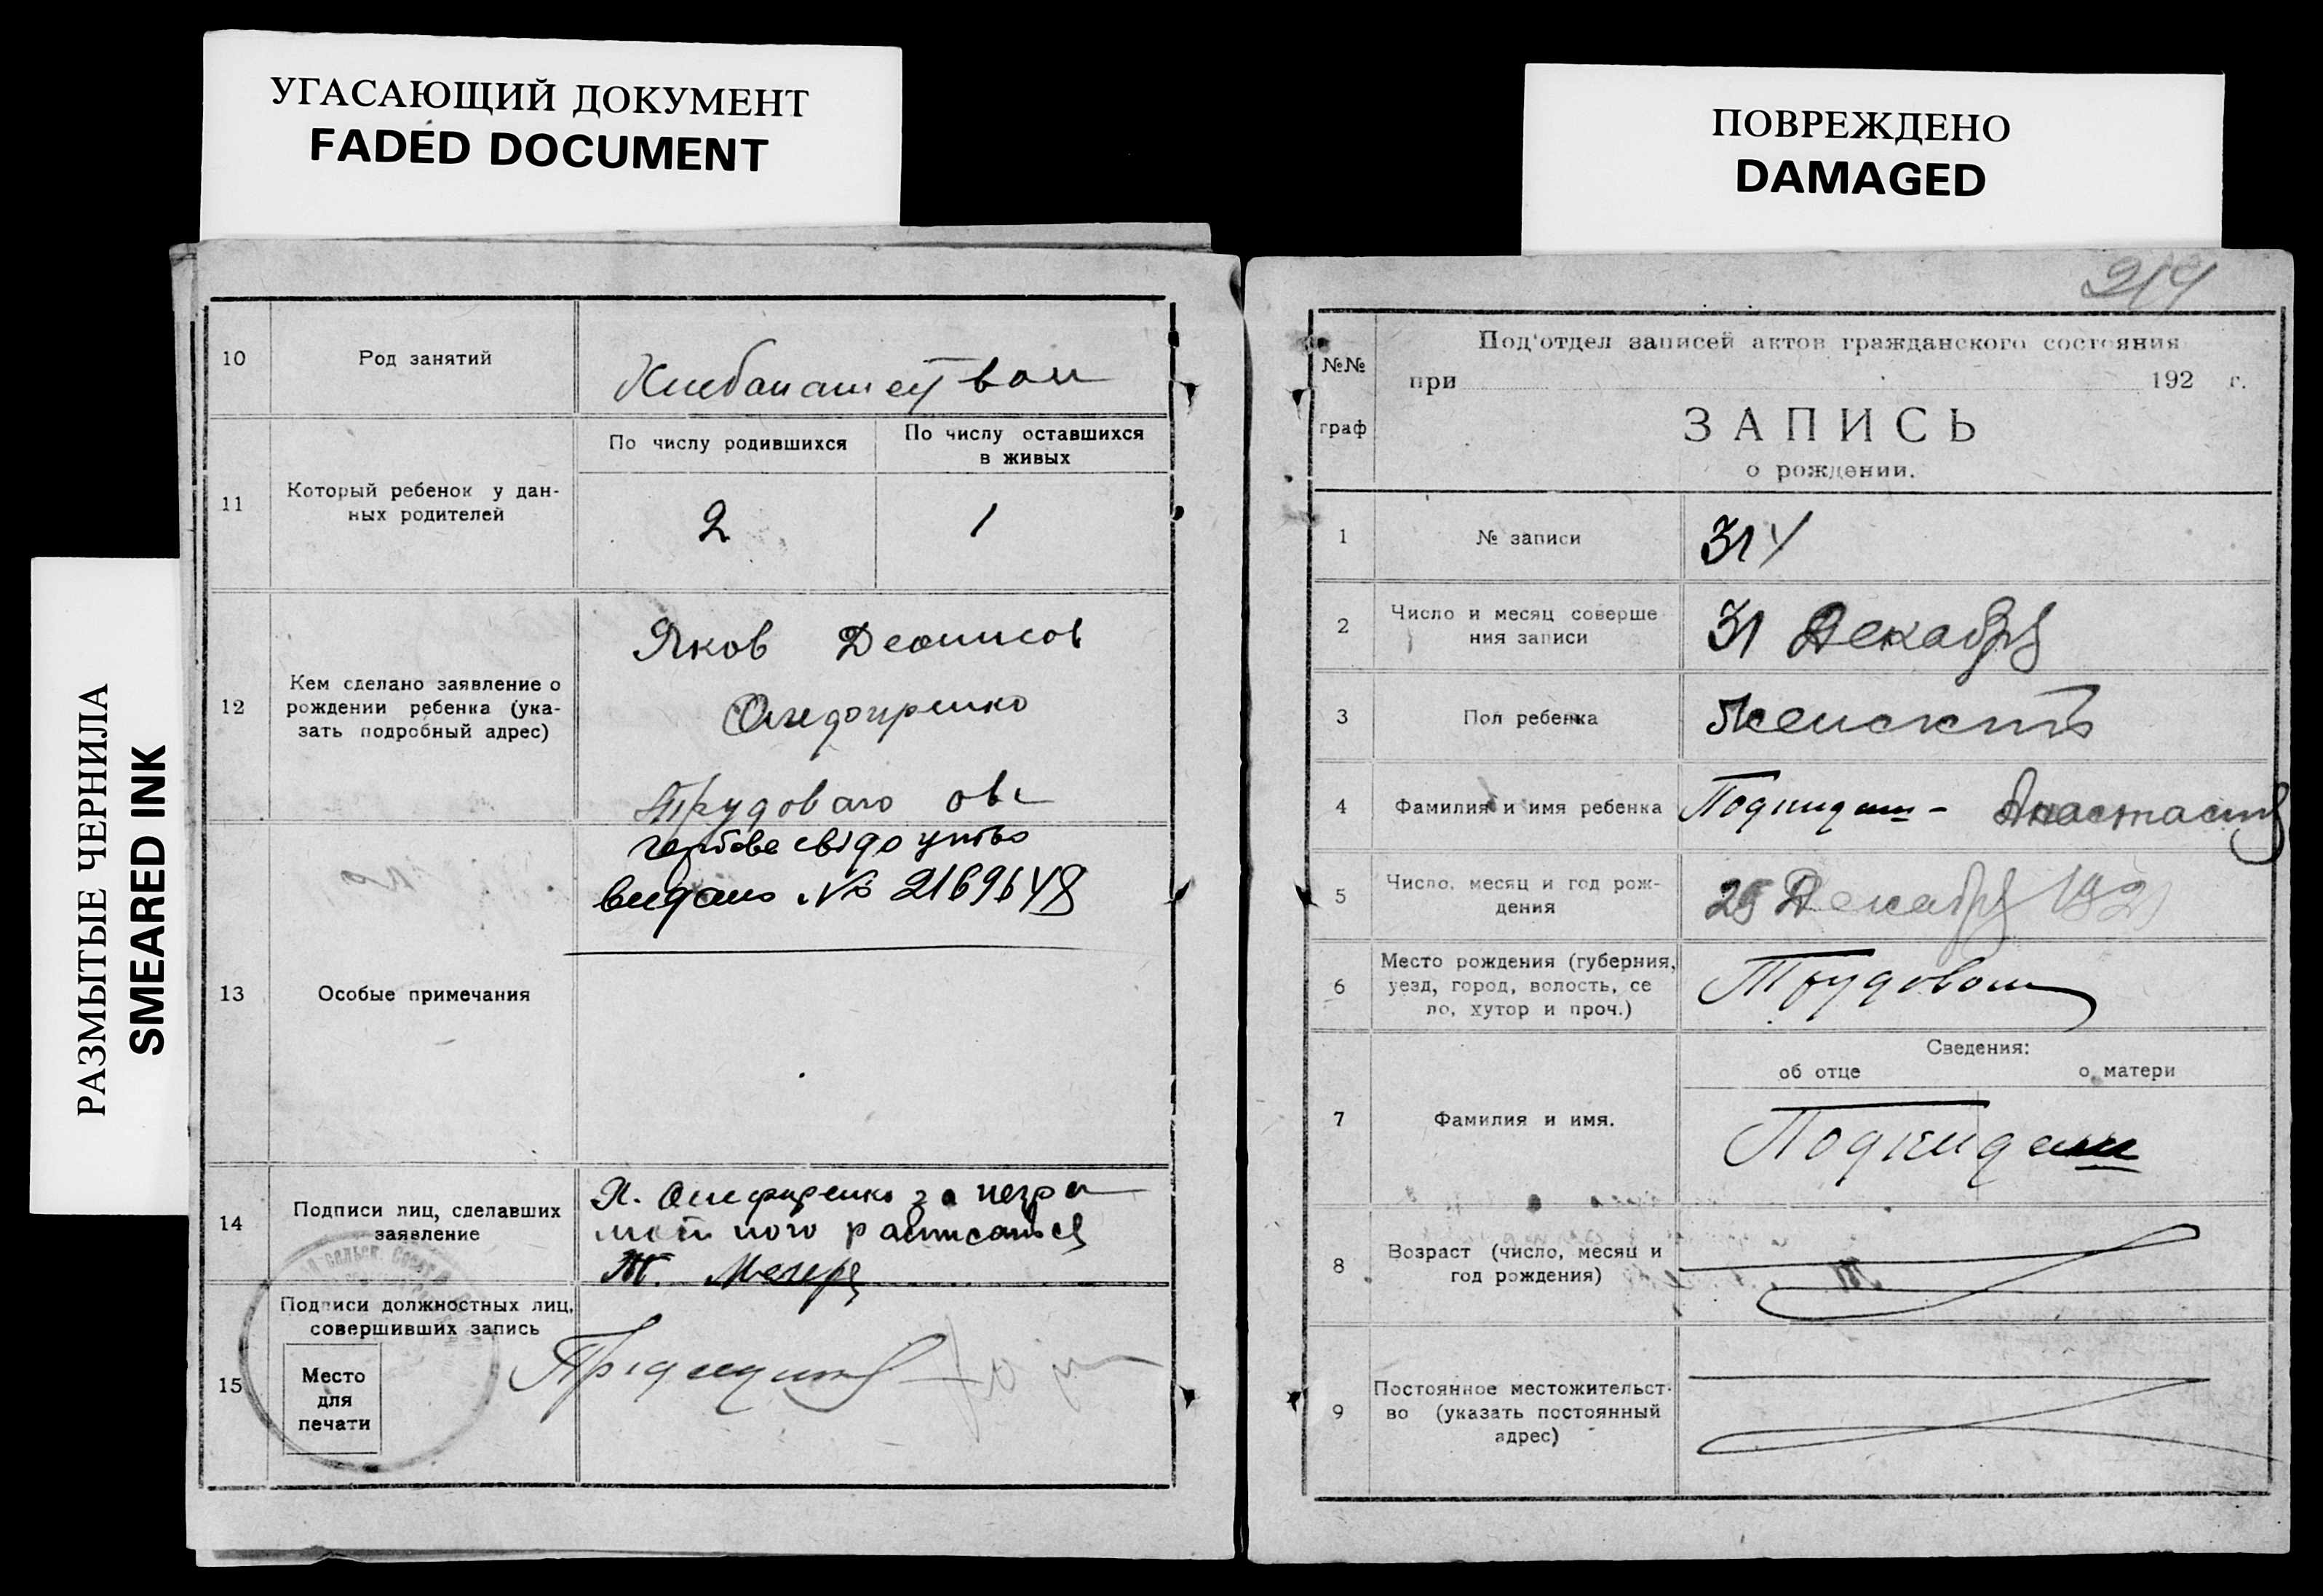 УГАСАЮЩИЙ ДОКУМЕНТ
FADED DOCUMENT
РАЗМЫТЫЕ ЧЕРНИЛА
SMEARED INK
10
Род занятий
11
Который ребенок у дан-
ных родителей
По числу родившихся
По числу оставшихся
в живых
2
1
12
Кем сделано заявление о
рождении ребенка (ука-
зать подробный адрес)
Яков
Трудоваго
13
Особые примечания
видано № 2169648
14
Подписи лиц, сделавших
заявление
15
Подписи должностных лиц,
совершивших запись
Место
для
печати
ПОВРЕЖДЕНО
DAMAGED
№№
граф
Под'отдел записей актов гражданского состояния
при 192 г.
ЗАПИСЬ
о рождении.
1
№ записи
314
2
Число и месяц соверше
ния записи
31 Декабря
3
Пол ребенка
4
Фамилия и имя ребенка
Подкидаш - Анастасия
5
Число, месяц и год рож-
дения
Декабря
6
Место рождения (губерния,
уезд, город, волость, се
ло, хутор и проч.)
7
Фамилия и имя.
Сведения:
об отце
о матери
Подкидаш
8
Возраст (число, месяц и
год рождения)
9
Постоянное местожительст-
во (указать постоянный
адрес)